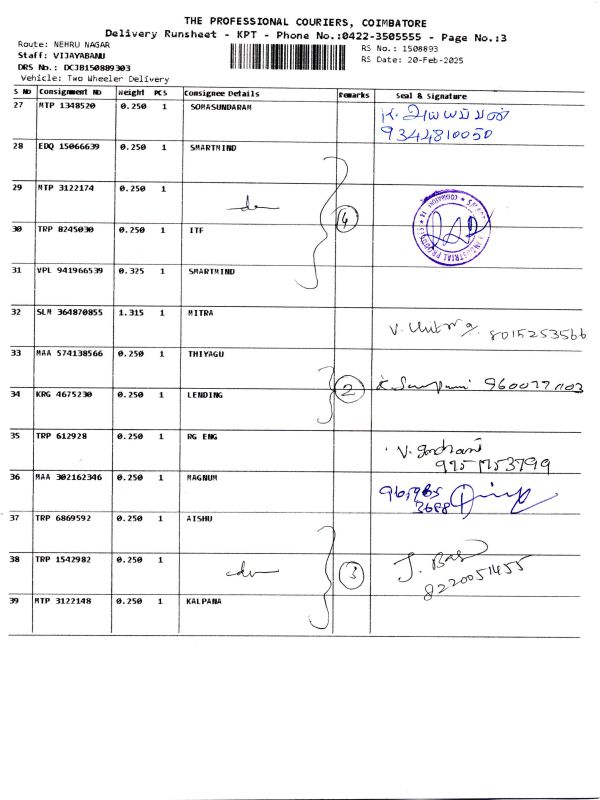 THE PROFESSIONAL COURIERS, COIMBATORE
Delivery Runsheet - KPT - Phone No.:0422-3505555 - Page No.:3
Route: NEHRU NAGAR
Staff: VIJAYABANU
DRS No.: DCJB150889303
Vehicle: Two Wheeler Delivery
RS No.: 1508893
RS Date: 20-Feb-2025
S NO Consignment NO Weight PCS Consignee Details Remarks Seal & Signature
27 MTP 1348520 0.250 1 SOMASUNDARAM
9344810050
28 EDQ 15066639 0.250 1 SMARTMIND
29 MTP 3122174 0.250 1
4
30 TRP 8245030 0.250 1 ITF
31 VPL 941966539 0.325 1 SMARTMIND
32 SLM 364870855 1.315 1 MITRA
8015253566
33 MAA 574138566 0.250 1 THIYAGU
2
34 KRG 4675230 0.250 1 LENDING
35 TRP 612928 0.250 1 RG ENG
36 MAA 302162346 0.250 1 MAGNUM
37 TRP 6869592 0.250 1 AISHU
38 TRP 1542982 0.250 1 3
8220051455
39 MTP 3122148 0.250 1 KALPANA